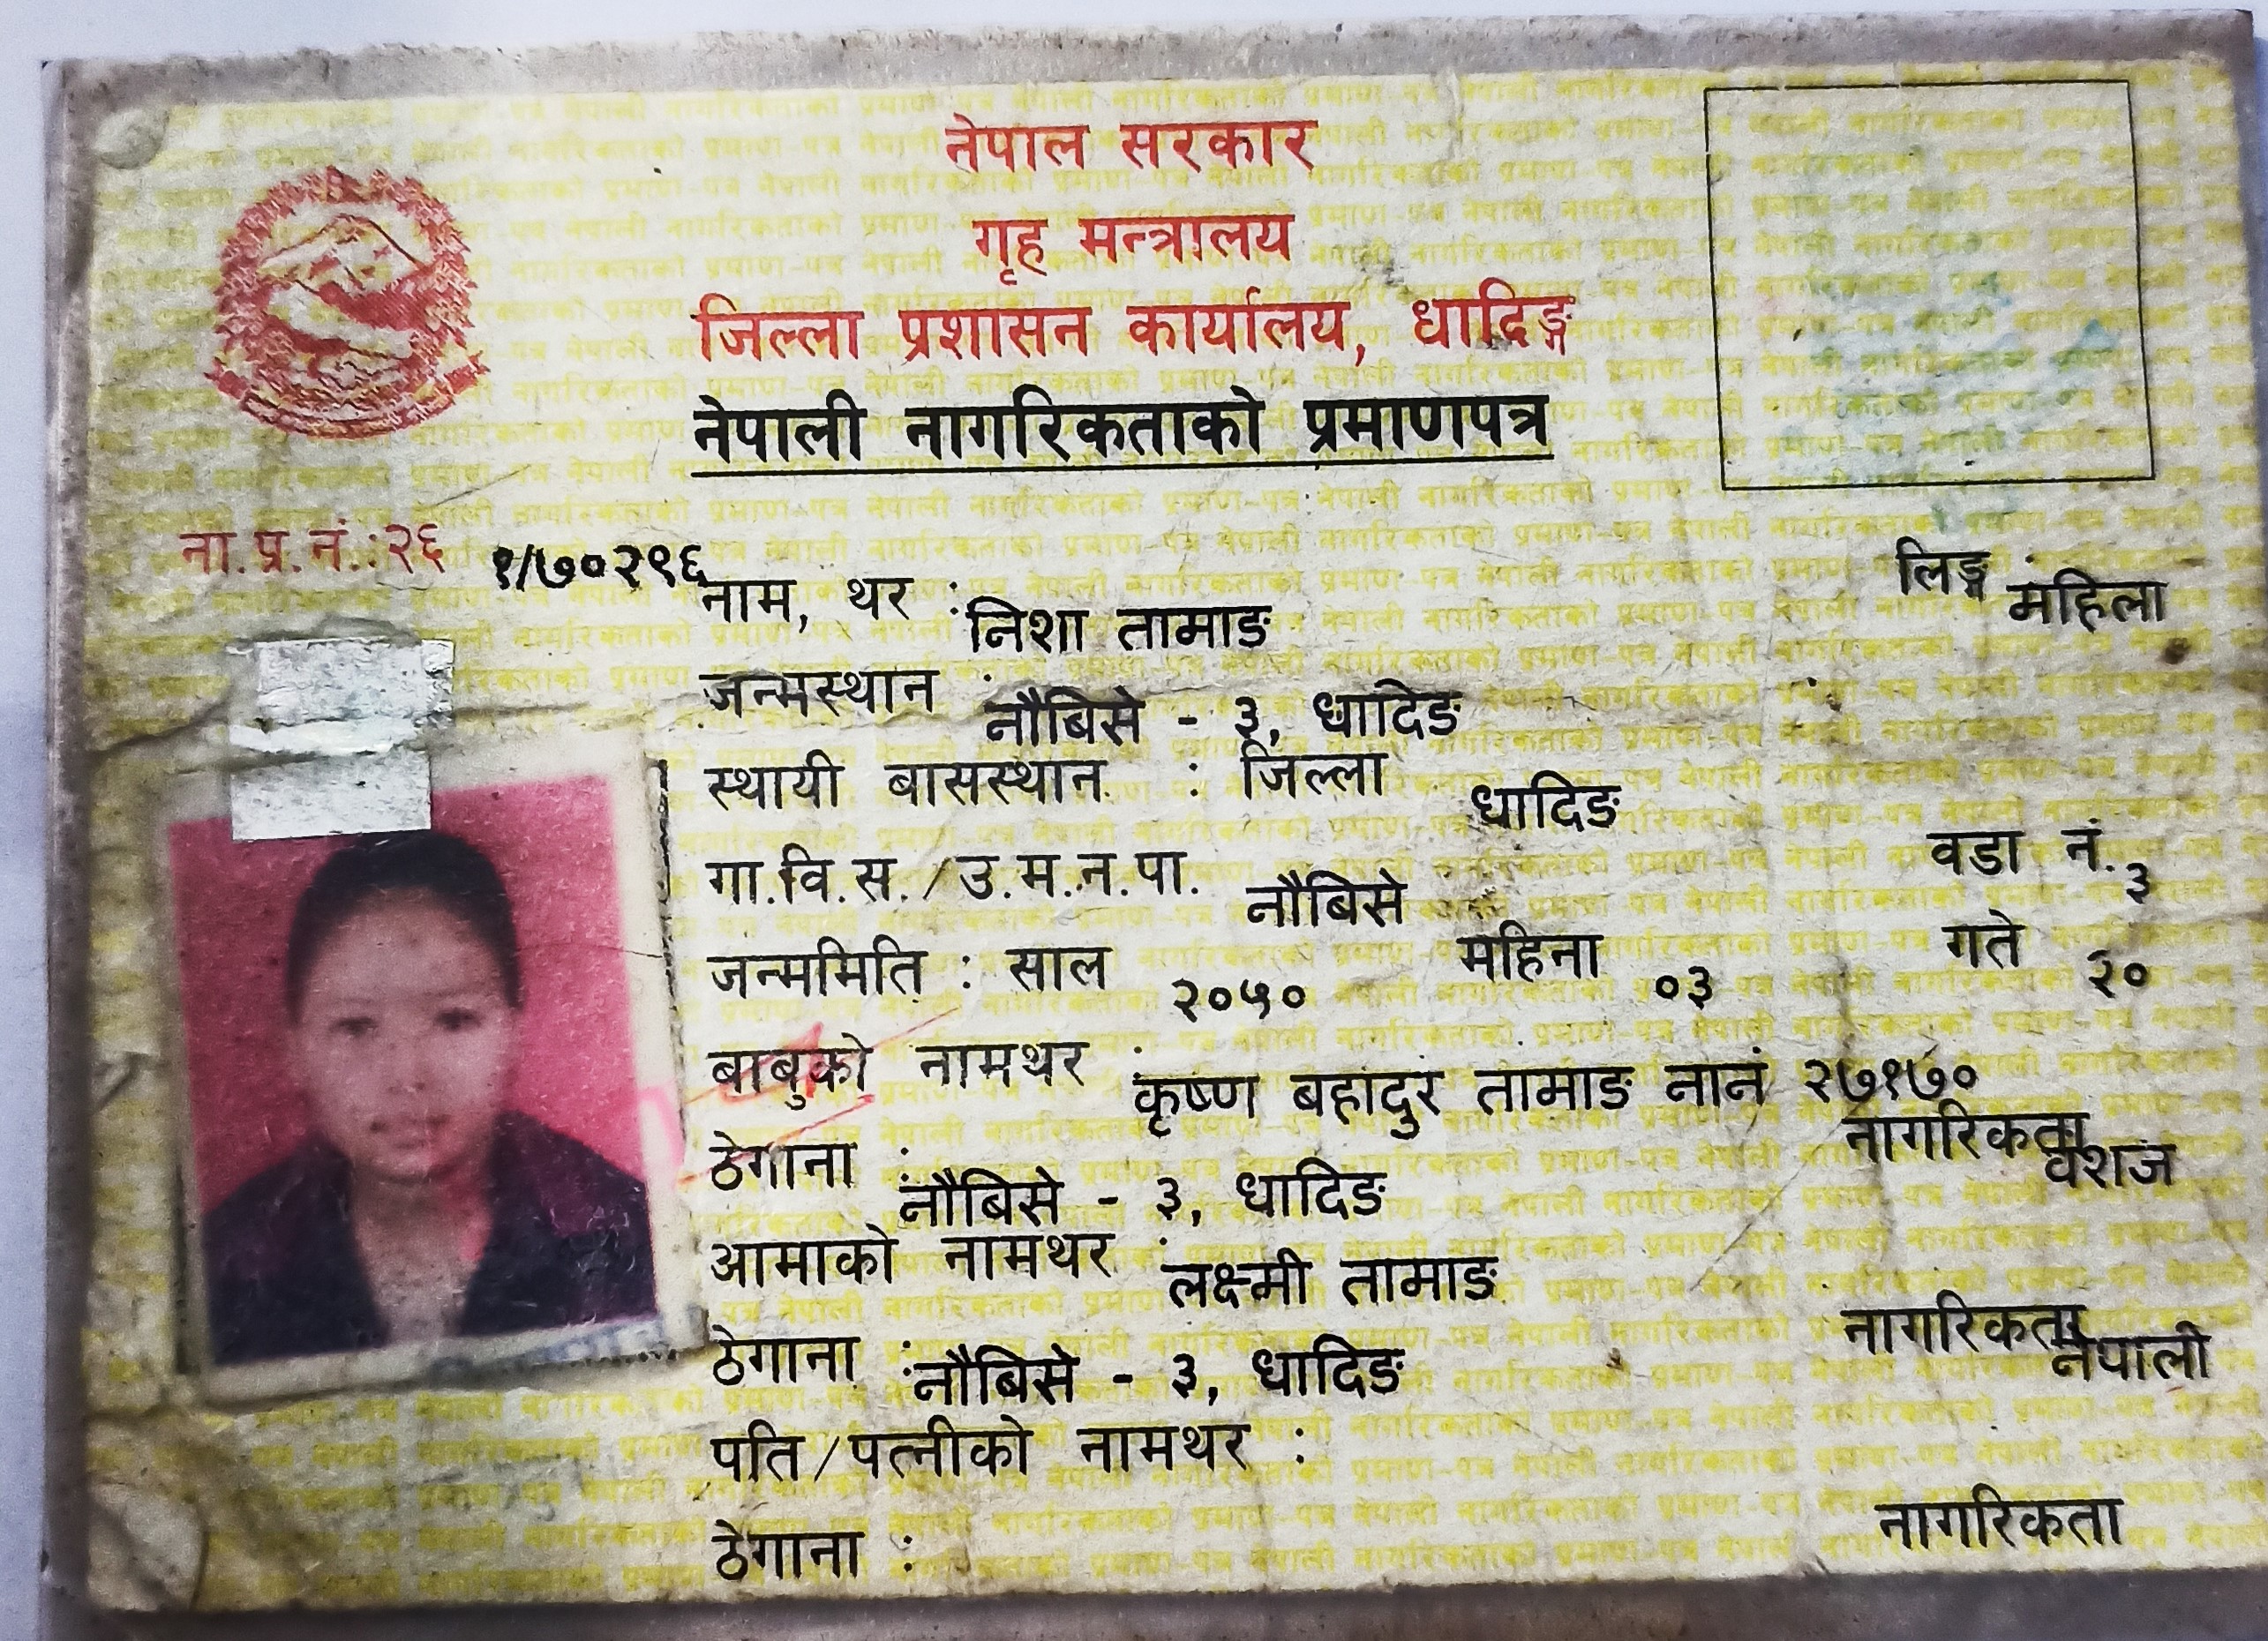 नेपाल सरकार
गृह मन्त्रालय
जिल्ला प्रशासन कार्यालय, धादिङ्ग
नेपाली नागरिकताको प्रमाणपत्र
ना.प्र.नं.:२६ १/७०२९६
नाम, थर : निशा तामाङ लिङ्ग : महिला
जन्मस्थान : नौबिसे - ३, धादिङ
स्थायी बासस्थान : जिल्ला धादिङ
गा.वि.स./उ.म.न.पा. नौबिसे वडा नं. ३
जन्ममिति : साल २०५० महिना ०३ गते २०
बाबुको नामथर : कृष्ण बहादुर तामाङ नानं २७१७०
ठेगाना : नौबिसे - ३, धादिङ नागरिकता वंशज
आमाको नामथर : लक्ष्मी तामाङ
ठेगाना : नौबिसे - ३, धादिङ नागरिकता नेपाली
पति/पत्नीको नामथर :
ठेगाना : नागरिकता